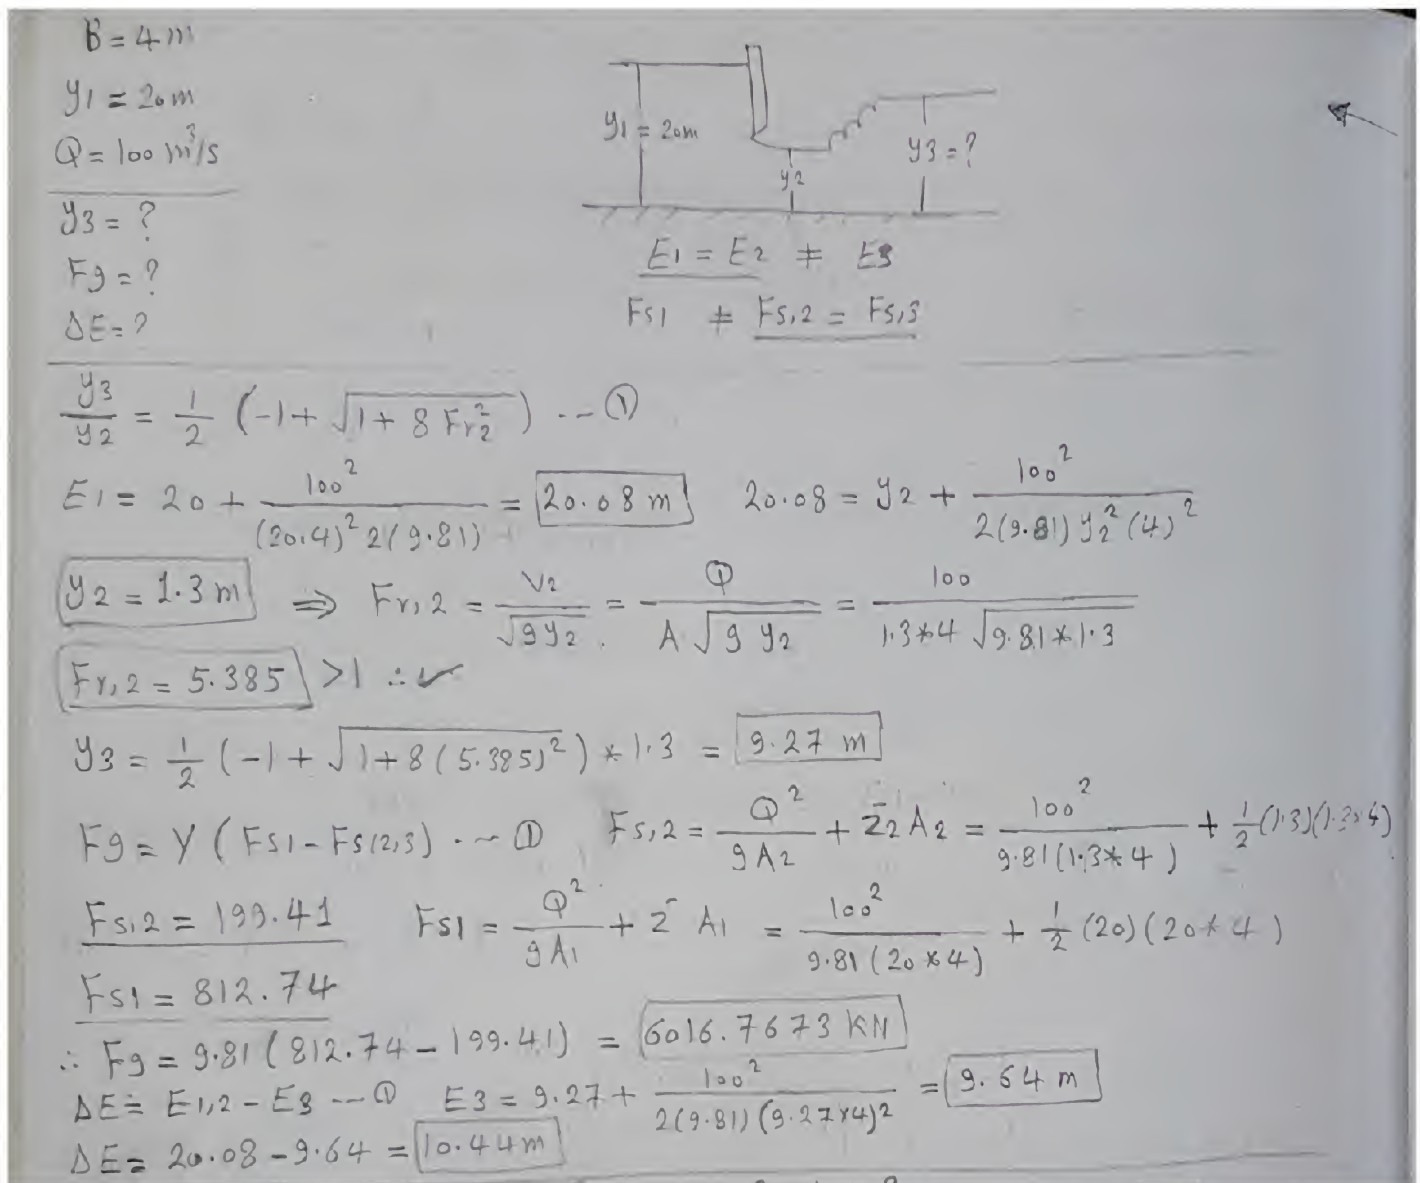 B = 4 m
y1 = 20 m
Q = 100 m³/s
y3 = ?
Fg = ?
ΔE = ?
y1 = 20m
y2
y3 = ?
E1 = E2 ≠ E3
Fs1 ≠ Fs,2 = Fs,3
y3/y2 = 1/2 (-1 + √(1 + 8 Fr2²)) --- ①
E1 = 20 + 100²/((20.4)² 2(9.81)) = 20.08 m 20.08 = y2 + 100²/(2(9.81) y2² (4)²)
y2 = 1.3 m ⇒ Fr,2 = V2/√(g y2) = Q/(A √(g y2)) = 100/(1.3*4 √(9.81*1.3))
Fr,2 = 5.385 >1 ∴ ✓
y3 = 1/2 (-1 + √(1+8(5.385)²)) * 1.3 = 9.27 m
Fg = γ (Fs1 - Fs(2,3) --- ① Fs,2 = Q²/(g A2) + z̄2 A2 = 100²/(9.81(1.3*4)) + 1/2 (1.3)(1.3*4)
Fs,2 = 199.41 Fs1 = Q²/(g A1) + z̄ A1 = 100²/(9.81(20*4)) + 1/2 (20)(20*4)
Fs1 = 812.74
∴ Fg = 9.81(812.74 - 199.41) = 6016.7673 KN
ΔE = E1,2 - E3 --- ① E3 = 9.27 + 100²/(2(9.81)(9.27*4)²) = 9.64 m
ΔE = 20.08 - 9.64 = 10.44 m